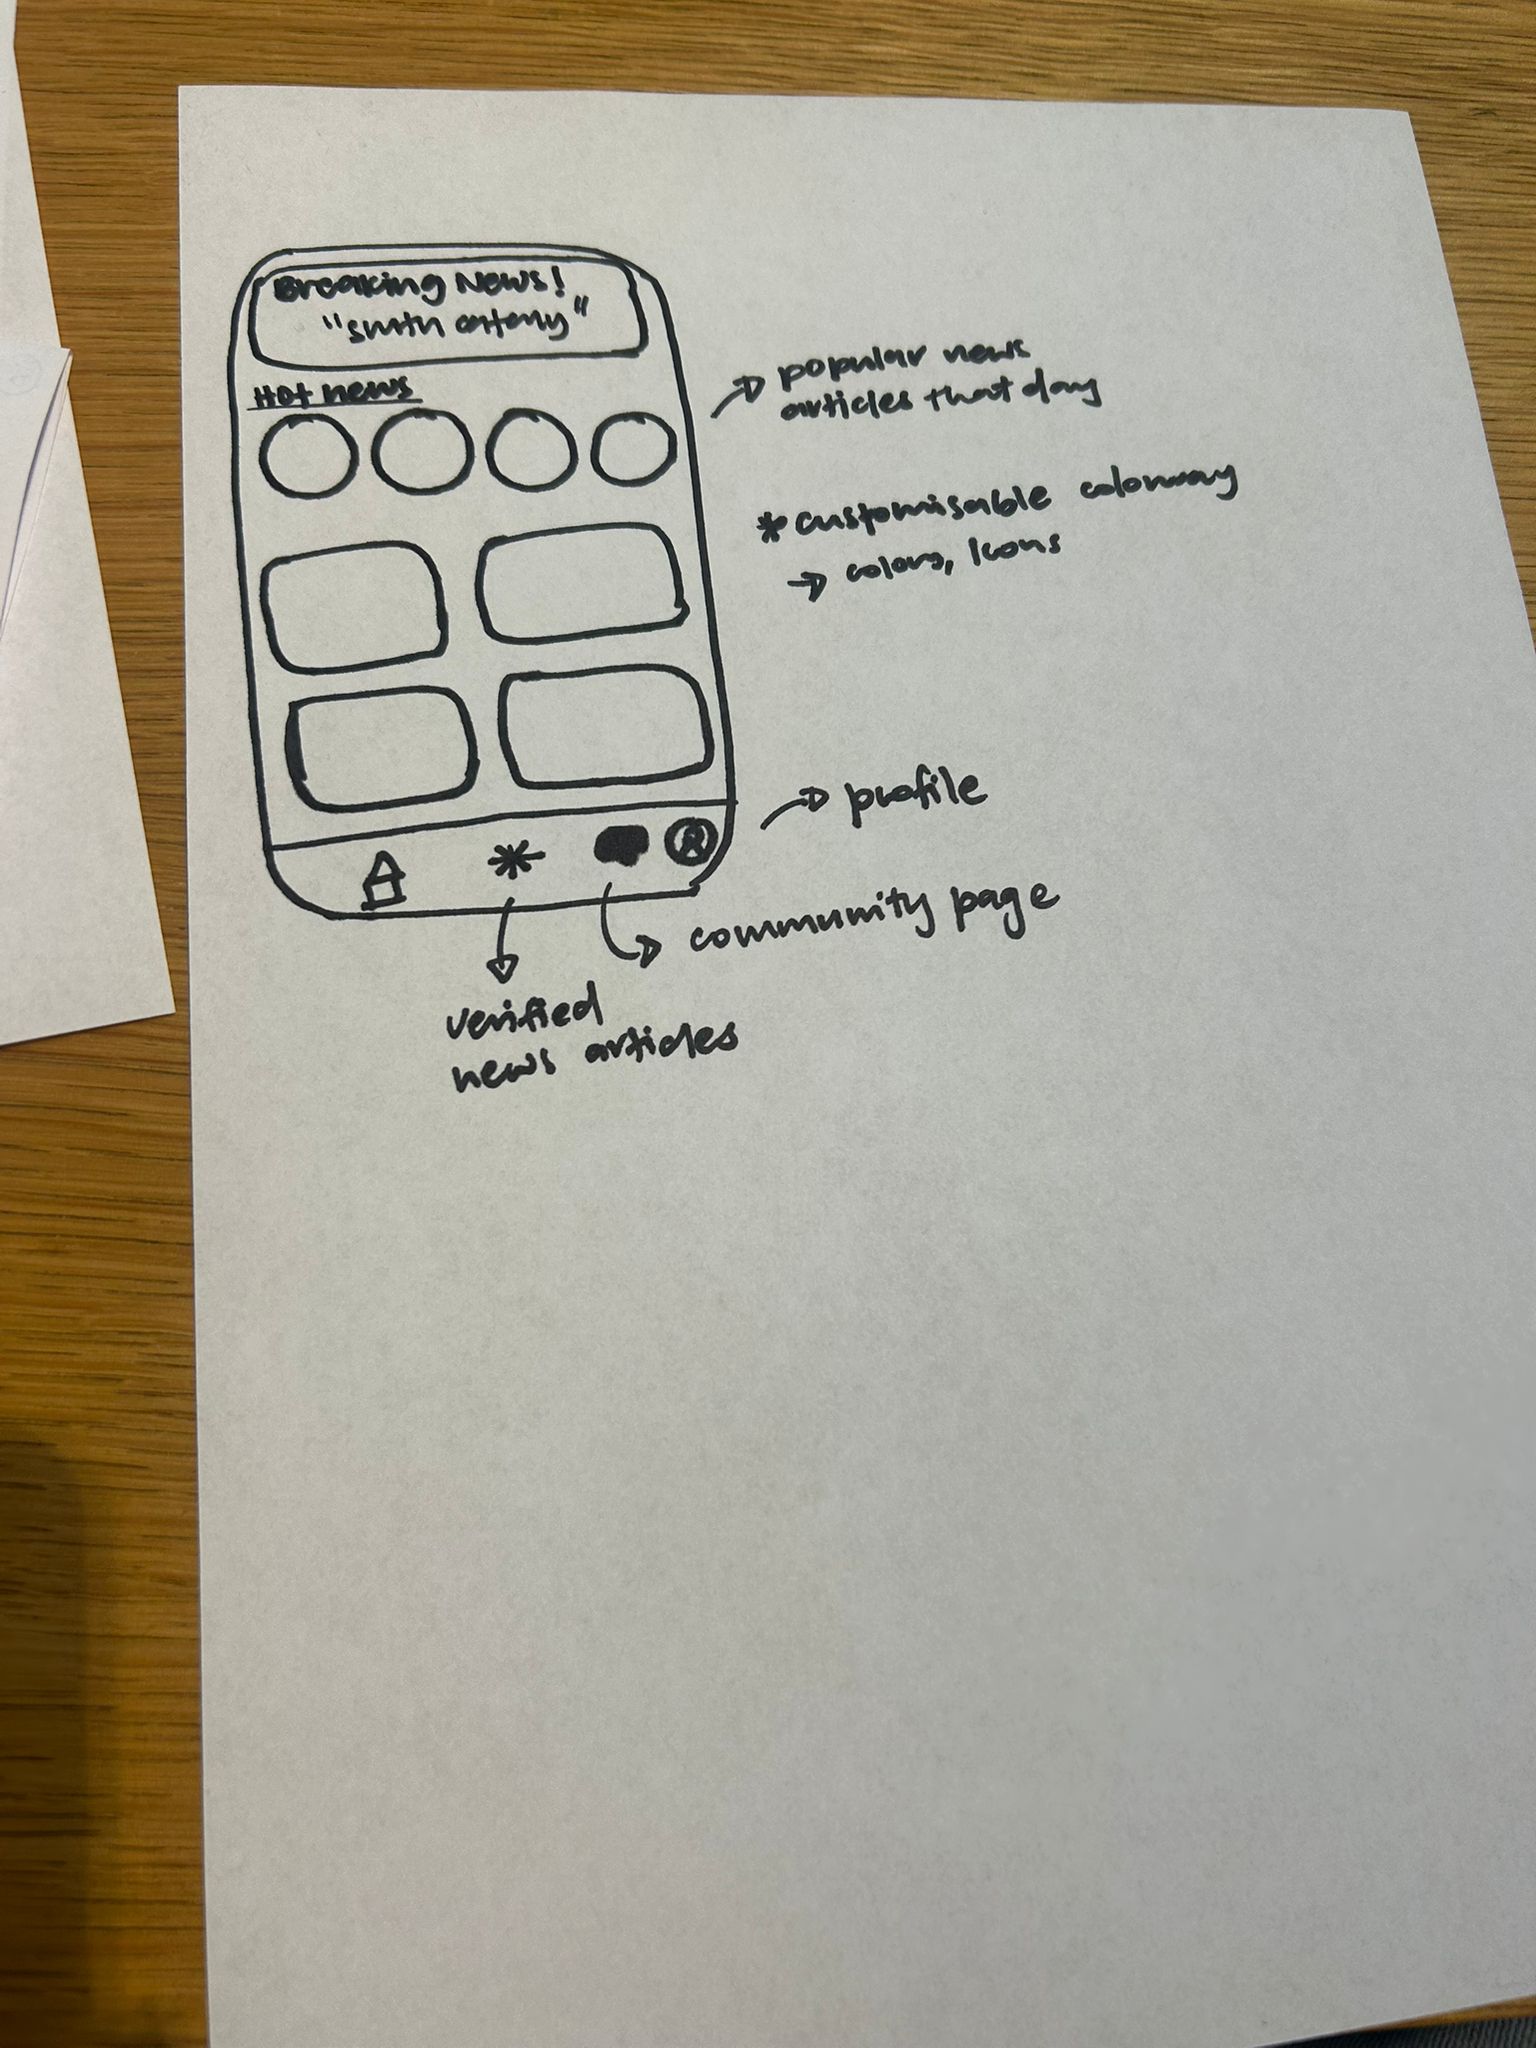 Breaking News!
"smth catchy"
Hot news
→ popular news
articles that day
* customisable colorway
→ colors, Icons
→ profile
→ community page
verified
news articles